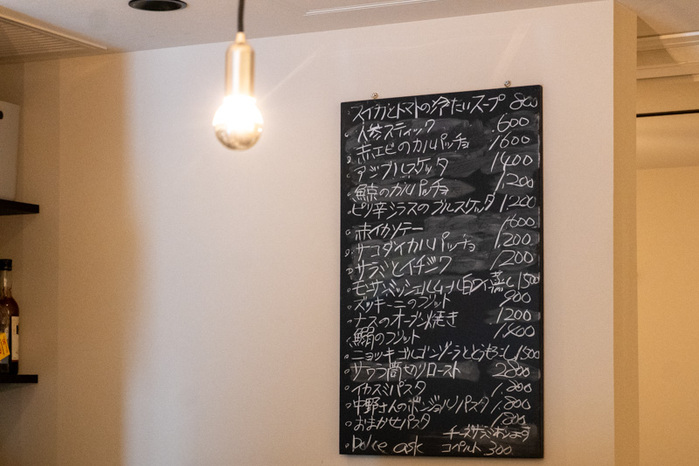 スイカとトマトの冷たいスープ 800
人参スティック 600
赤エビのカルパッチョ 1600
アジブルスケッタ 1400
鯨のカルパッチョ 1200
ピリ辛シラスのブルスケッタ 1.200
ホイカソテー 1600
マコダイカルパッチョ 1.200
サラミとイチジク 1200
モンサンミッシェルムール白ワイン蒸し 1500
ズッキーニのフリット 900
ナスのオーブン焼き 1200
鯛のフリット 1400
ニョッキゴルゴンゾーラととうもろこし 1500
サワラ筒切りロースト 2800
イカスミパスタ 1.800
中野さんのボンジョルノパスタ 1.800
おまかせパスタ 1.800
Dolce ask コペルト 300